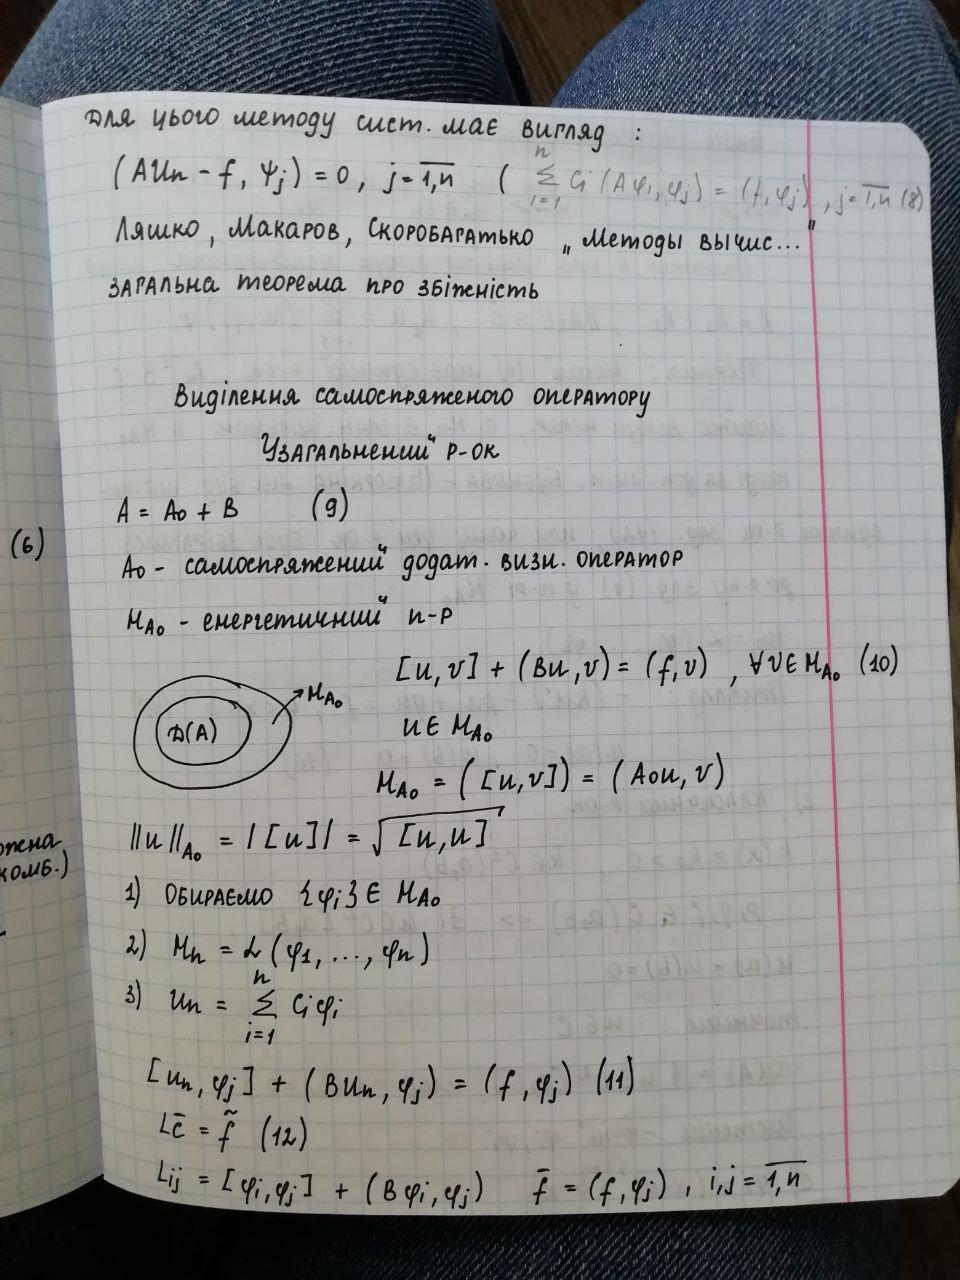 Для цього методу сист. має вигляд :
(AUn - f, Ψj) = 0, j = 1,n ( n∑i=1 Ci (Aφi, φj) = (f, φj), j = 1,n (8)
Ляшко, Макаров, Скоробагатько „Методы вычис..."
Загальна теорема про збіжність
Виділення самоспряженого оператору
Узагальнений р-ок
(6)
A = A₀ + B (9)
A₀ - самоспряжений додат. визн. оператор
H_A₀ - енергетичний п-р
[u, v] + (Bu, v) = (f, v), ∀v∈H_A₀ (10)
D(A) → H_A₀
u ∈ H_A₀
H_A₀ = ([u, v]) = (A₀u, v)
||u||_A₀ = |[u]| = √[u, u]
комб.)
1) Обираємо {φi} ∈ H_A₀
2) Hn = L(φ1, ..., φn)
3) Un = n∑i=1 Ciφi
[Un, φj] + (BUn, φj) = (f, φj) (11)
Lc̄ = f̃ (12)
Lij = [φi, φj] + (Bφi, φj) f̄ = (f, φj), i,j = 1,n